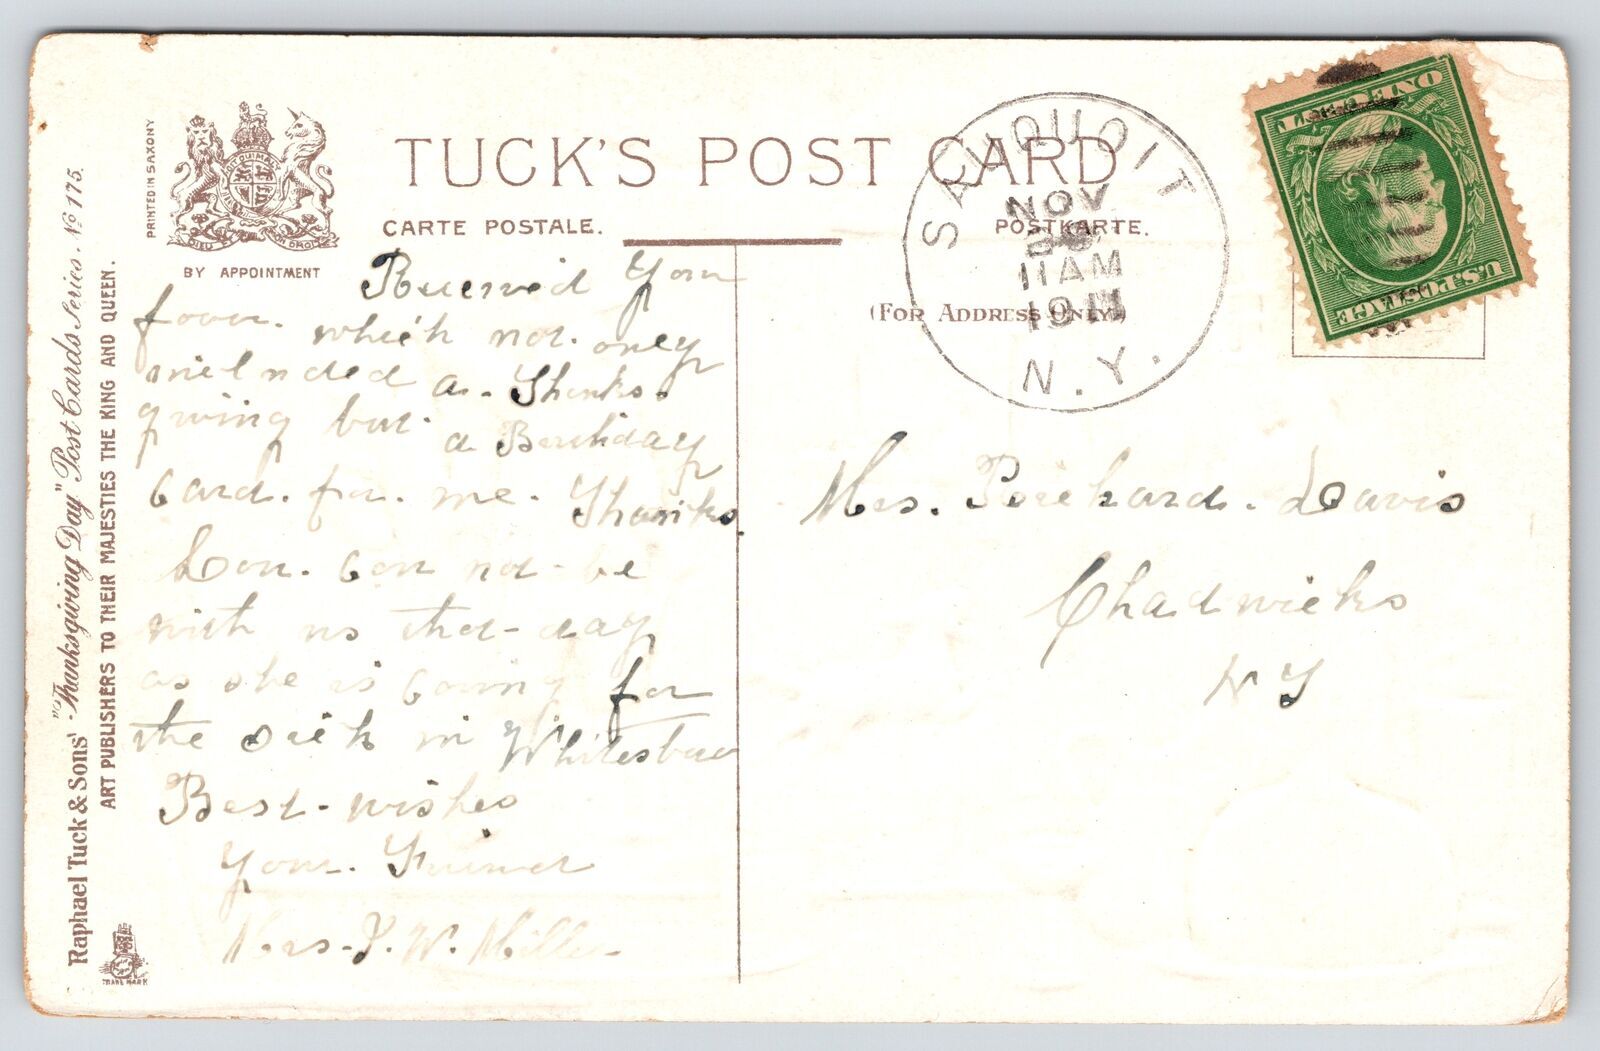 Raphael Tuck & Sons' "Thanksgiving Day" Post Cards Series. No 175.
ART PUBLISHERS TO THEIR MAJESTIES THE KING AND QUEEN.
PRINTED IN SAXONY
DIEU ET MON DROIT
BY APPOINTMENT
TRADE MARK
TUCK'S POST CARD
CARTE POSTALE.
POSTKARTE.
(FOR ADDRESS ONLY.)
SAUQUOIT
NOV
11 AM
1911
N.Y.
ONE CENT
U.S. POSTAGE
Received your
favor. which not. only
included a. Thanks.
giving but a Birthday
Card. for. me. Thanks.
Lou. Can not. be
with us that-day
as she is Caring for
the sick in Whitesboro
Best-wishes
Your. Friend
Mrs. J. W. Miller
Mrs. Richard. Davis
Chadwicks
N Y